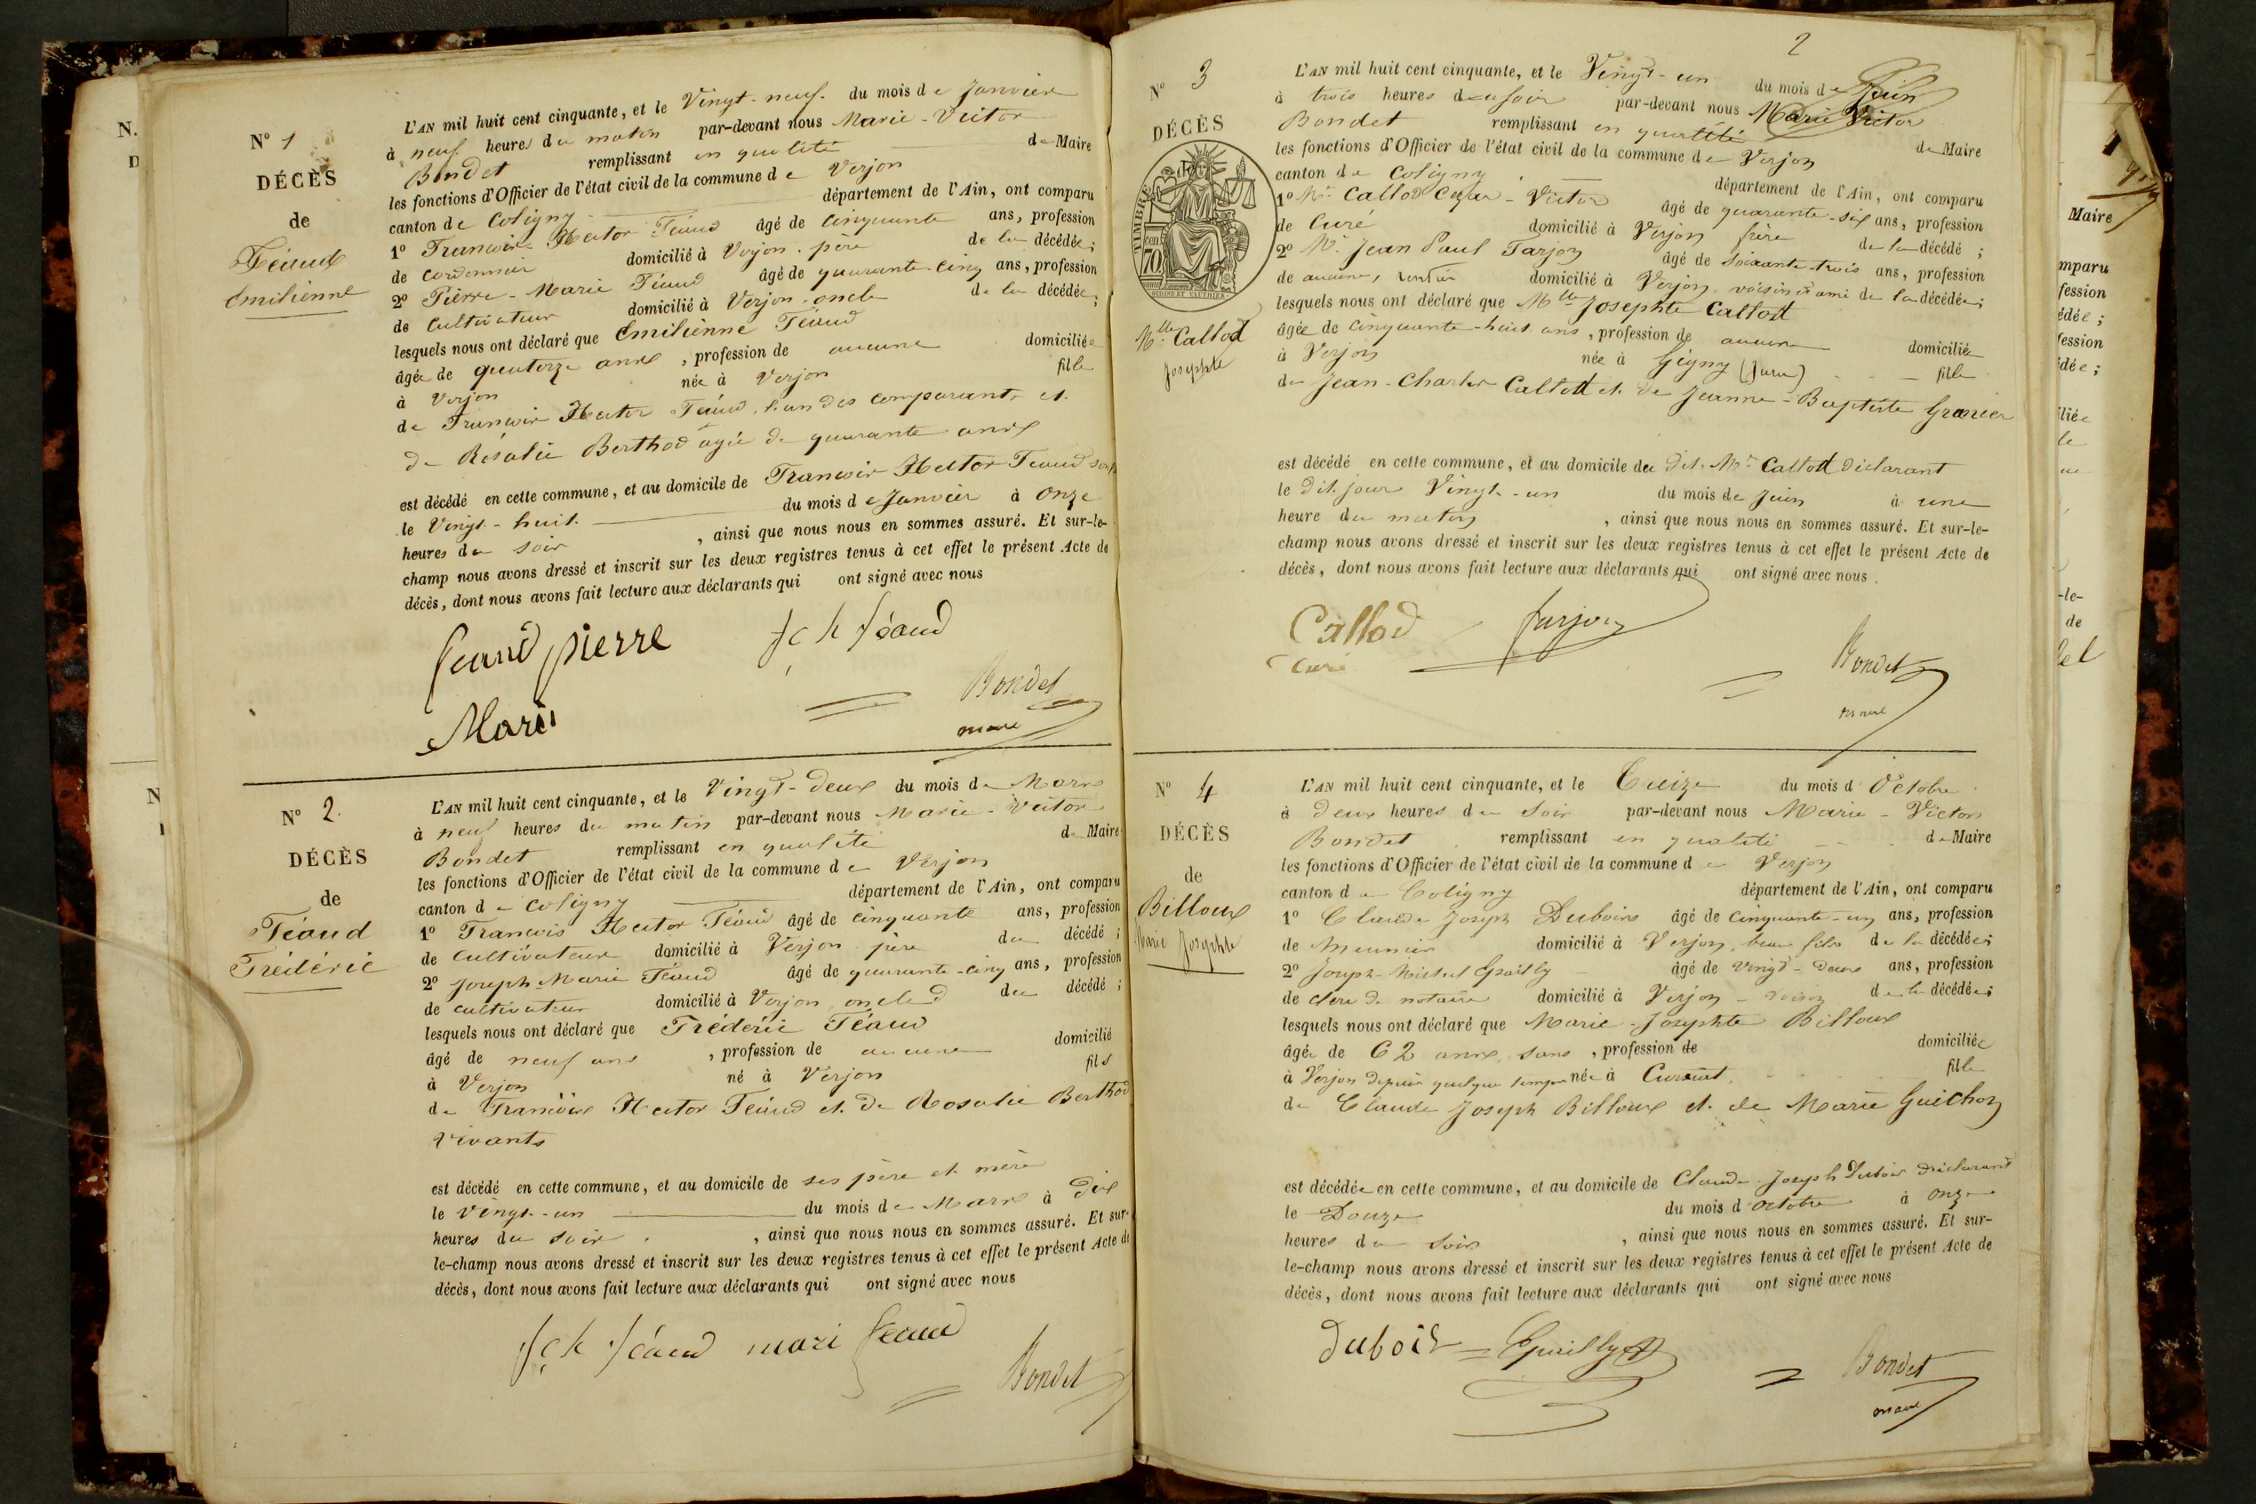 N° 1
DÉCÈS
de
Féaud
Emilienne
L'AN mil huit cent cinquante, et le Vingt-neuf du mois de Janvier
à neuf heures du matin par-devant nous Marie-Victor
Bondet remplissant en qualité de Maire
les fonctions d'Officier de l'état civil de la commune de Verjon
canton de Coligny département de l'Ain, ont comparu
1° François Hector Féaud âgé de cinquante ans, profession
de cordonnier domicilié à Verjon, père de la décédée;
2° Pierre-Marie Féaud âgé de quarante-cinq ans, profession
de cultivateur domicilié à Verjon, oncle de la décédée;
lesquels nous ont déclaré que Emilienne Féaud
âgée de quatorze ans, profession de aucune domiciliée
à Verjon née à Verjon fille
de François Hector Féaud, l'un des comparants et
de Rosalie Berthod âgée de quarante ans
est décédé en cette commune, et au domicile de François Hector Féaud
le Vingt-huit du mois de Janvier à onze
heures du soir, ainsi que nous nous en sommes assuré. Et sur-le-
champ nous avons dressé et inscrit sur les deux registres tenus à cet effet le présent Acte de
décès, dont nous avons fait lecture aux déclarants qui ont signé avec nous
feaud pierre f ç h féaud
Marie
Bondet
maire
N° 2.
DÉCÈS
de
Féaud
Frédéric
L'AN mil huit cent cinquante, et le Vingt-deux du mois de Mars
à neuf heures du matin par-devant nous Marie-Victor
Bondet remplissant en qualité de Maire
les fonctions d'Officier de l'état civil de la commune de Verjon
canton de Coligny département de l'Ain, ont comparu
1° François Hector Féaud âgé de cinquante ans, profession
de cultivateur domicilié à Verjon père du décédé;
2° Joseph-Marie Féaud âgé de quarante-cinq ans, profession
de cultivateur domicilié à Verjon, oncle du décédé;
lesquels nous ont déclaré que Frédéric Féaud
âgé de neuf ans, profession de aucune domicilié
à Verjon né à Verjon fils
de François Hector Féaud et de Rosalie Berthod
vivants
est décédé en cette commune, et au domicile de ses père et mère
le vingt-un du mois de Mars à dix
heures du soir, ainsi que nous nous en sommes assuré. Et sur-
le-champ nous avons dressé et inscrit sur les deux registres tenus à cet effet le présent Acte de
décès, dont nous avons fait lecture aux déclarants qui ont signé avec nous
f ç h féaud mari feaud
Bondet
2
N° 3
DÉCÈS
TIMBRE
70
Mlle Callod
Josephte
L'AN mil huit cent cinquante, et le Vingt-un du mois de Juin
à trois heures du soir par-devant nous Marie Victor
Bondet remplissant en qualité de Maire
les fonctions d'Officier de l'état civil de la commune de Verjon
canton de Coligny département de l'Ain, ont comparu
1° Mr Callod César-Victor âgé de quarante-six ans, profession
de Curé domicilié à Verjon frère de la décédé;
2° Mr Jean Paul Farjon âgé de soixante-trois ans, profession
de aucune, rentier domicilié à Verjon, voisin et ami de la décédée;
lesquels nous ont déclaré que Mlle Josephte Callod
âgée de cinquante-huit ans, profession de aucune domiciliée
à Verjon née à Gigny (Jura) fille
de Jean-Charles Callod et de Jeanne-Baptiste Granier
est décédé en cette commune, et au domicile du dit Mr Callod déclarant
le dit jour Vingt-un du mois de Juin à une
heure du matin, ainsi que nous nous en sommes assuré. Et sur-le-
champ nous avons dressé et inscrit sur les deux registres tenus à cet effet le présent Acte de
décès, dont nous avons fait lecture aux déclarants qui ont signé avec nous.
Callod farjon
Curé
Bondet
maire
N° 4
DÉCÈS
de
Billoux
Marie Josephte
L'AN mil huit cent cinquante, et le Treize du mois d'Octobre
à deux heures du soir par-devant nous Marie-Victor
Bondet remplissant en qualité de Maire
les fonctions d'Officier de l'état civil de la commune de Verjon
canton de Coligny département de l'Ain, ont comparu
1° Claude Joseph Dubois âgé de cinquante-un ans, profession
de Meunier domicilié à Verjon, beau fils de la décédée;
2° Joseph-Michel âgé de vingt-deux ans, profession
de clerc de notaire domicilié à Verjon - voisin de la décédée;
lesquels nous ont déclaré que Marie-Josephte Billoux
âgée de 62 ans, sans, profession de domiciliée
à Verjon depuis quelque temps née à fille
de Claude Joseph Billoux et de Marie Guichon
est décédée en cette commune, et au domicile de Claude Joseph Dubois déclarant
le Douze du mois d'octobre à onze
heures du soir, ainsi que nous nous en sommes assuré. Et sur-
le-champ nous avons dressé et inscrit sur les deux registres tenus à cet effet le présent Acte de
décès, dont nous avons fait lecture aux déclarants qui ont signé avec nous
Dubois
Bondet
maire